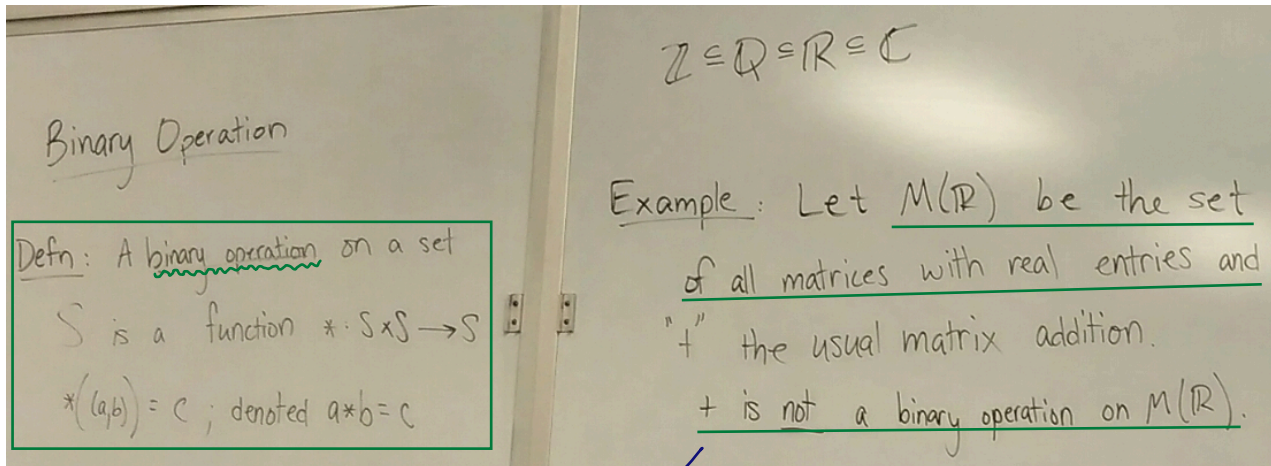 Binary Operation
Defn: A binary operation on a set
S is a function * : S×S → S
*((a,b)) = c ; denoted a*b = c
ℤ ⊆ ℚ ⊆ ℝ ⊆ ℂ
Example: Let M(ℝ) be the set
of all matrices with real entries and
"+" the usual matrix addition.
+ is not a binary operation on M(ℝ).